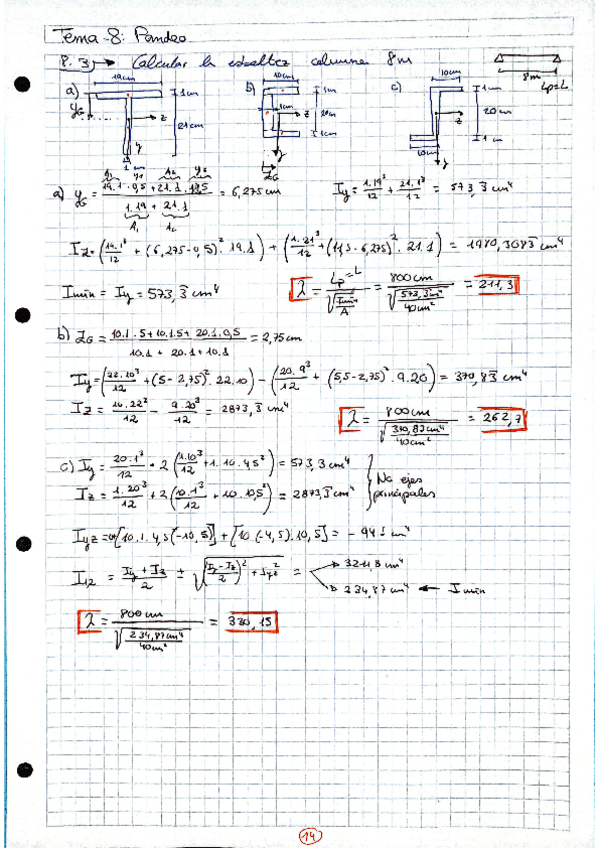 Tema 8: Pandeo
8.3 → Calcular la esbeltez columna 8m
a) 19cm 1cm 21cm 1cm z y
b) 10cm 1cm 1cm 20cm 1cm z y
c) 10cm 1cm 20cm 1cm 10cm z y
8m Lp=L
A₁ y₁ A₂ y₂
a) y_G = (19.1.0,5 + 21.1.11,5) / (1.19 + 21.1) = 6,275cm
A₁ A₂
I_y = 1.19³/12 + 21.1³/12 = 573,3 cm⁴
I_z = (19.1³/12 + (6,275-0,5)².19.1) + (1.21³/12 + (11,5-6,275)².21.1) = 1980,3083 cm⁴
Imin = I_y = 573,3 cm⁴
λ = Lp=L / √(Imin/A) = 800cm / √(573,3cm⁴/40cm²) = 211,3
b) z_G = (10.1.5 + 10.1.5 + 20.1.0,5) / (10.1 + 20.1 + 10.1) = 2,75cm
I_y = (22.10³/12 + (5-2,75)².22.10) - (20.9³/12 + (5,5-2,75)².9.20) = 370,83 cm⁴
I_z = 10.22³/12 - 9.20³/12 = 2873,3 cm⁴
λ = 800cm / √(370,83cm⁴/40cm²) = 262,7
c) I_y = 20.1³/12 + 2(1.10³/12 + 1.10.4,5²) = 573,3 cm⁴
I_z = 1.20³/12 + 2(10.1³/12 + 10.10,5²) = 2873,3 cm⁴
No ejes principales
I_yz = [10.1.4,5(-10,5)] + [10.(-4,5).10,5] = -945 cm⁴
I₁,₂ = (I_y + I_z)/2 ± √(((I_y - I_z)/2)² + I_yz²) =
3211,8 cm⁴
234,87 cm⁴ ← Imin
λ = 800cm / √(234,87cm⁴/40cm²) = 330,15
14